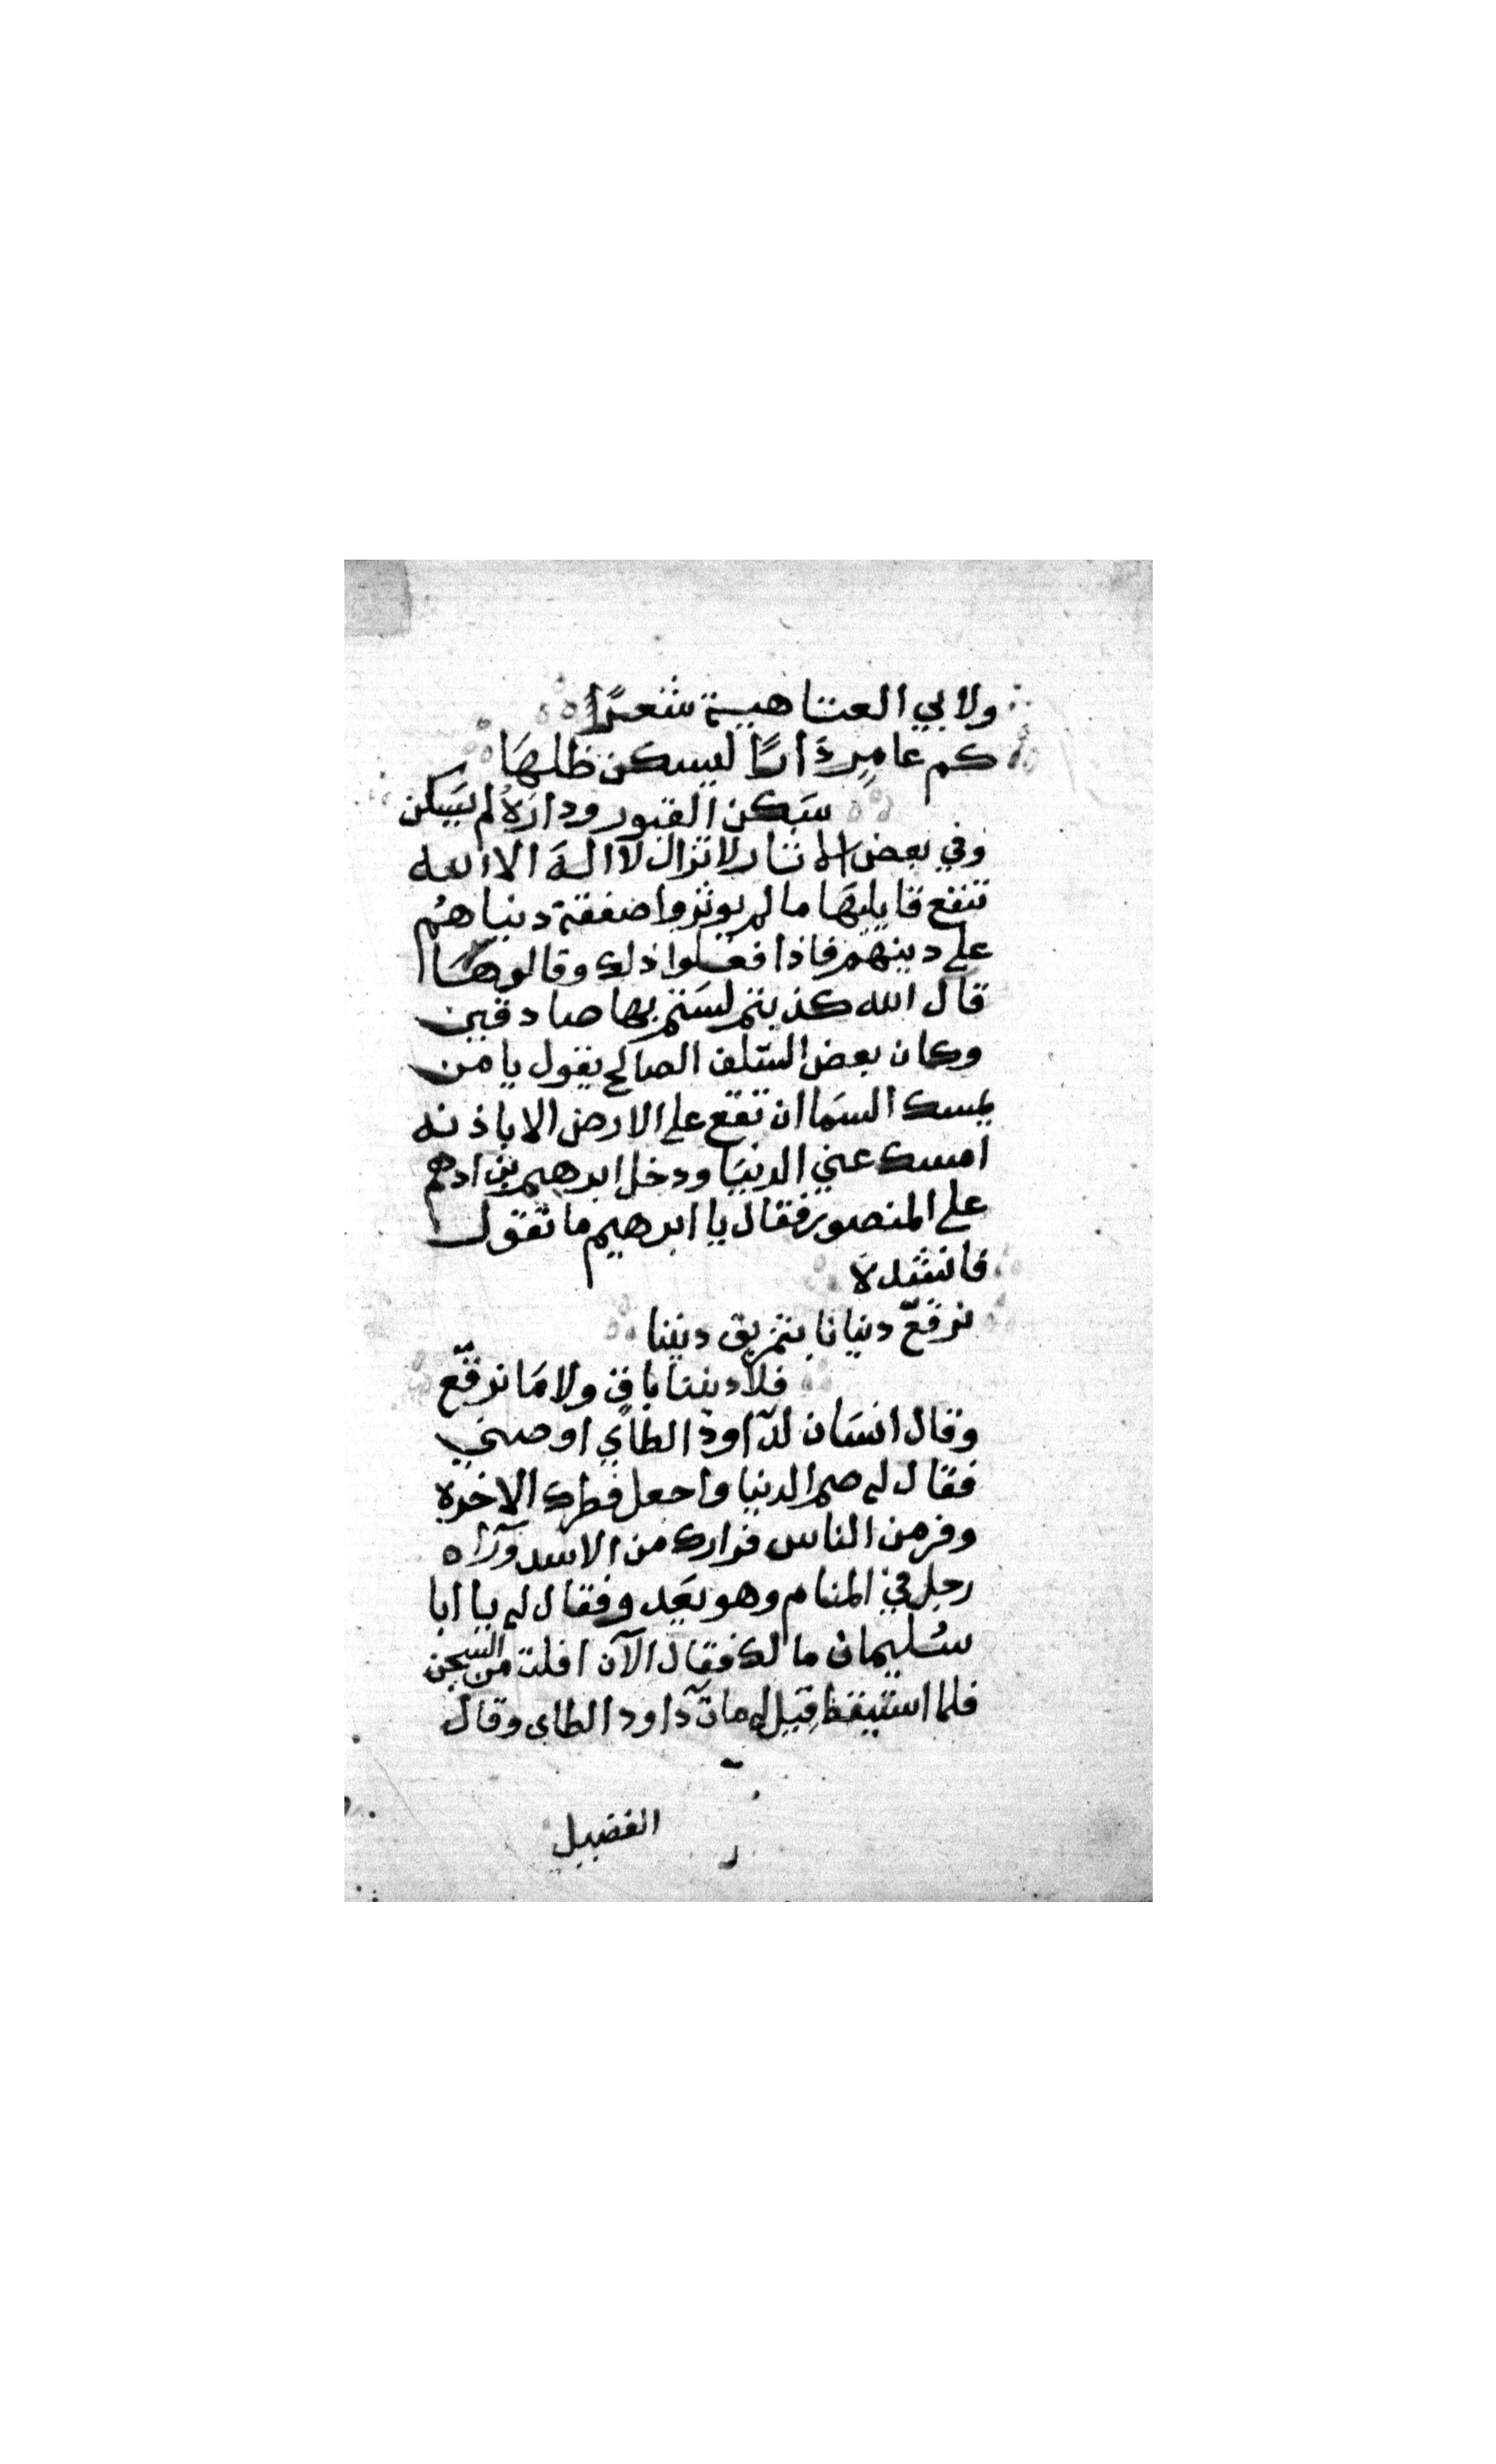 ولابي العتاهية شعرًا
كم عامِرٍ دَارًا ليسكن ظلهَا
سَكن القبور ودارَهُ لم يسَكن
وفي بعض الاثار لا تزال لا الهَ الا الله
تنفع قايليهَا ما لم يوثروا صفقة دنياهُم
على دينهم فاذا فعَلوا ذلك وقالوهَا
قال الله كذبتم لسَتم بها صادقين
وكان بعض السّلف الصالح يقول يا من
يمسك السمَا ان تقع على الارض الا باذنه
امسك عني الدنيَا ودخل ابرهيم بن ادهم
على المنصور فقال يا ابرهيم ما تقول
فانشده
نرقّع دنيانا بتمزيق ديننا
فلا ديننا باقٍ ولا مَا نرقّع
وقال انسَان لدآاود الطاي اوصني
فقال له صم الدنيا واجعل فطرك الاخرة
وفر من الناس فرارك من الاسد ورآاه
رجل في المنام وهو يَعدو فقال له يا ابا
سُليمان ما لك فقال الآن افلت من السجن
فلما استيقظ قِيَل له مات دآاود الطاى وقال
الفضيل